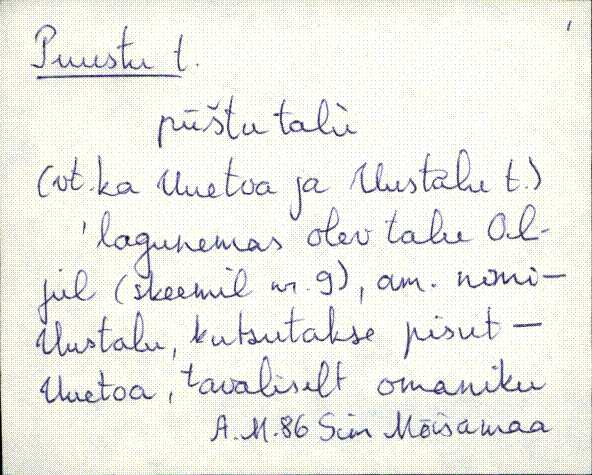 Puustu t.
pūštu talù
(vt. ka Uuetoa ja Uustalu t.)
'lagunemas olev talu Ol-
jul (skeemil nr. 9), am. nimi-
Uustalu, kutsutakse pisut-
Uuetoa, tavaliselt omaniku
A.M. 86 Siin Mõisamaa